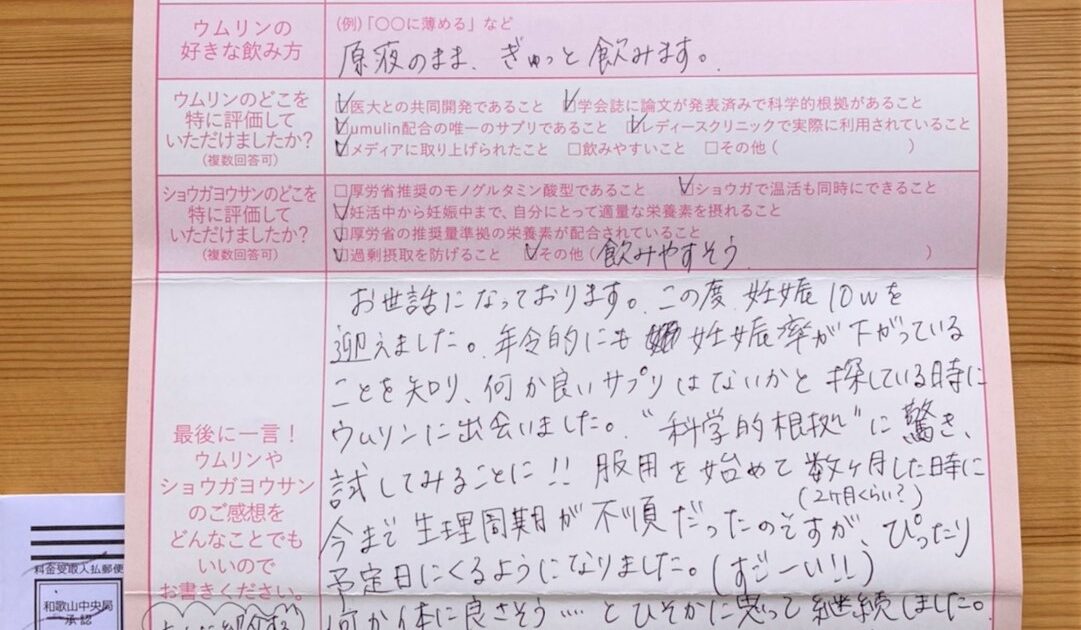 ウムリンの
好きな飲み方
(例)「〇〇に薄める」など
原液のまま、ぎゅっと飲みます。
ウムリンのどこを
特に評価して
いただけましたか?
(複数回答可)
☑医大との共同開発であること ☑学会誌に論文が発表済みで科学的根拠があること
☑umulin配合の唯一のサプリであること ☑レディースクリニックで実際に利用されていること
☑メディアに取り上げられたこと □飲みやすいこと □その他( )
ショウガヨウサンのどこを
特に評価して
いただけましたか?
(複数回答可)
□厚労省推奨のモノグルタミン酸型であること ☑ショウガで温活も同時にできること
☑妊活中から妊娠中まで、自分にとって適量な栄養素を摂れること
☑厚労省の推奨量準拠の栄養素が配合されていること
☑過剰摂取を防げること ☑その他(飲みやすそう )
最後に一言!
ウムリンや
ショウガヨウサン
のご感想を
どんなことでも
いいので
お書きください。
お世話になっております。この度 妊娠10wを
迎えました。年令的にも 妊娠率が下がっている
ことを知り、何か良いサプリはないかと探している時に
ウムリンに出会いました。"科学的根拠"に驚き、
試してみることに!! 服用を始めて数ヶ月した時に
(2ヶ月くらい?)
今まで生理周期が不順だったのですが、ぴったり
予定日にくるようになりました。(すご〜い!!)
何か体に良さそう…とひそかに思って継続しました。
料金受取人払郵便
和歌山中央局
承認